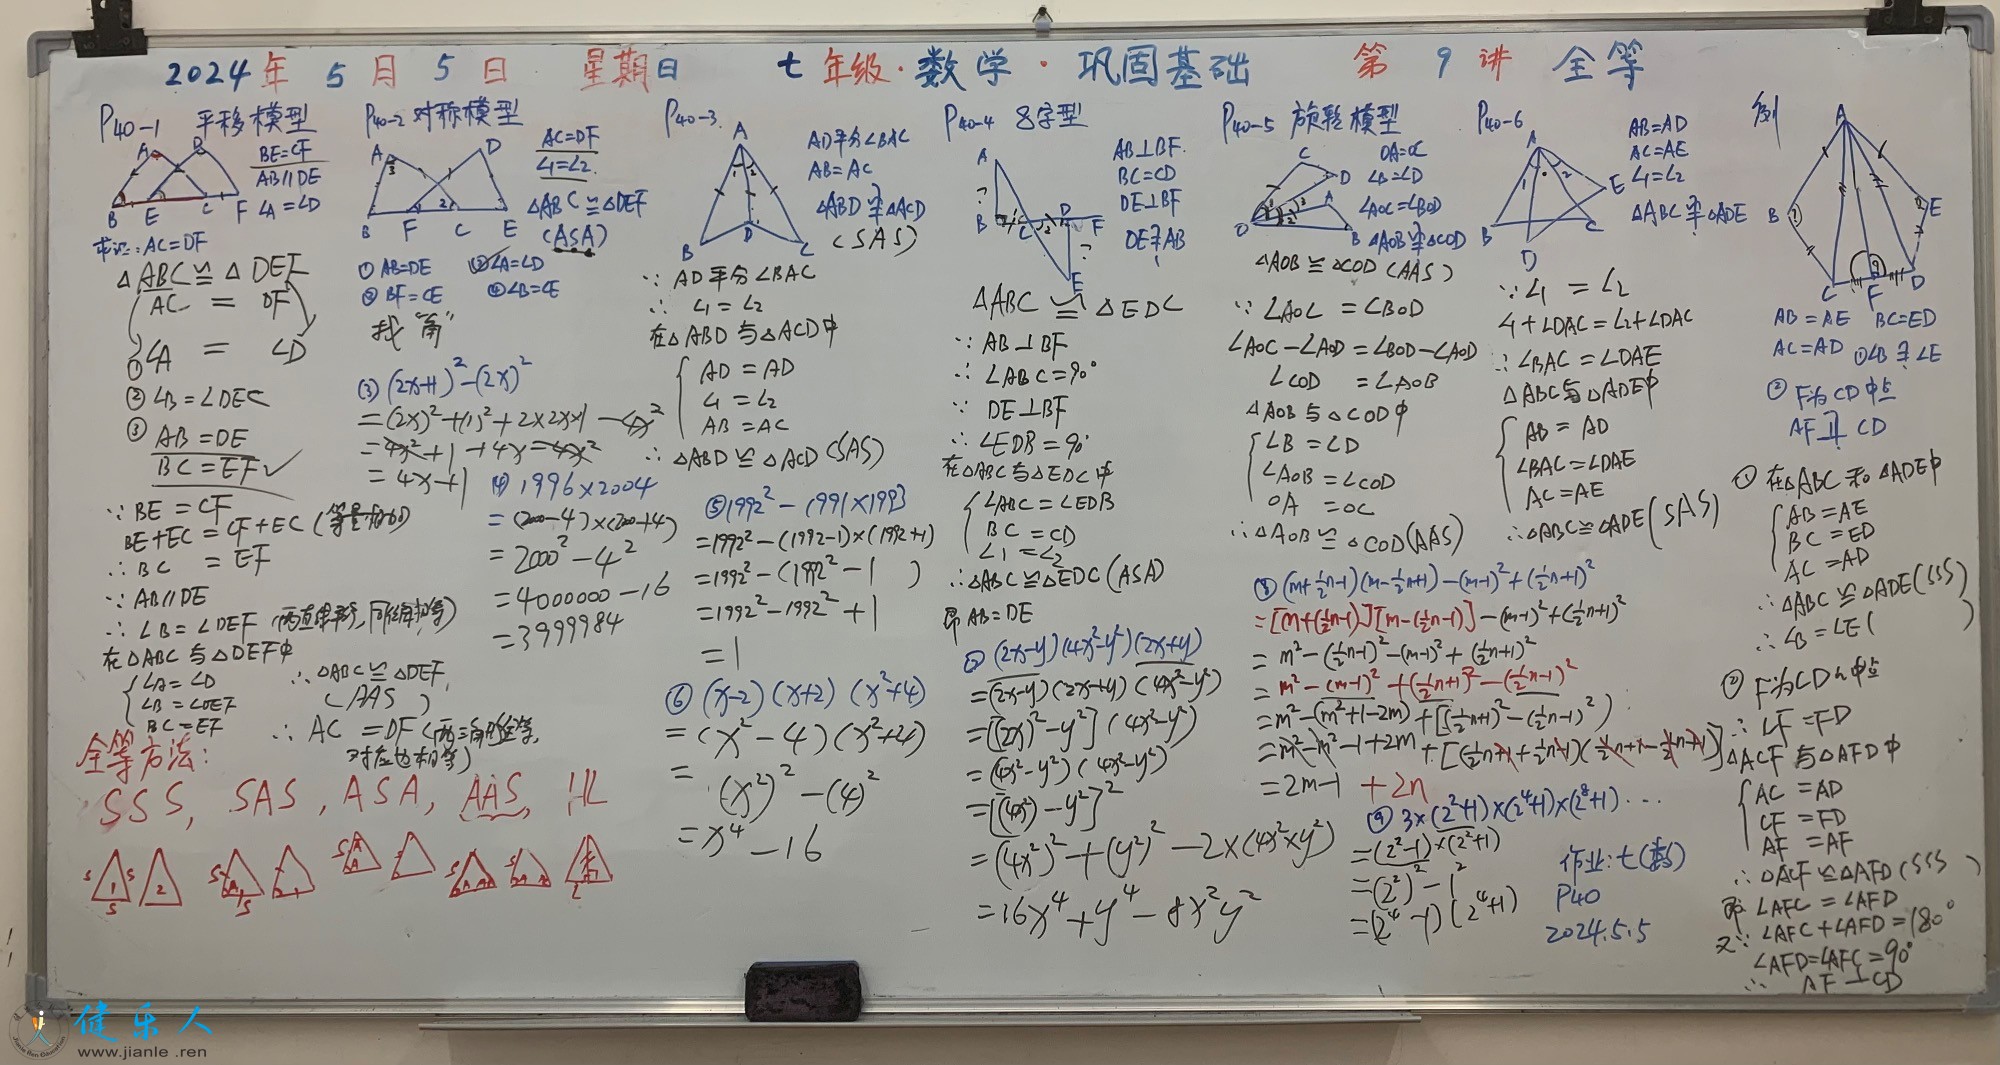 2024年5月5日 星期日 七年级·数学·巩固基础 第9讲 全等
P40-1 平移模型
A
D
B E C F
BE=CF
AB∥DE
∠A=∠D
求证:AC=DF
△ABC≌△DEF
AC = DF
①∠A = ∠D
②∠B=∠DEC
③AB=DE
BC=EF✓
∵BE=CF
BE+EC=CF+EC(等量相加)
∴BC = EF
∵AB∥DE
∴∠B=∠DEF
在△ABC与△DEF中
∠A=∠D
∠B=∠DEF
BC=EF
∴△ABC≌△DEF
(AAS)
∴AC=DF
对应边相等)
全等方法:
SSS, SAS, ASA, AAS, HL
P40-2 对称模型
A D
3
1 2
B F C E
AC=DF
∠1=∠2
△ABC≌△DEF
(ASA)
①AB=DE ②∠A=∠D
③BF=CE ④∠B=∠E
找“角”
③(2x+1)²-(2x)²
=(2x)²+(1)²+2×2x×1-4x²
=4x²+1+4x-4x²
=4x+1
④1996×2004
=(2000-4)×(2000+4)
=2000²-4²
=4000000-16
=3999984
P40-3
A
1 2
B D C
AD平分∠BAC
AB=AC
△ABD≌△ACD
(SAS)
∵AD平分∠BAC
∴∠1=∠2
在△ABD与△ACD中
AD=AD
∠1=∠2
AB=AC
∴△ABD≌△ACD(SAS)
⑤1992²-1991×1993
=1992²-(1992-1)×(1992+1)
=1992²-(1992²-1)
=1992²-1992²+1
=1
⑥(x-2)(x+2)(x²+4)
=(x²-4)(x²+4)
=(x²)²-(4)²
=x⁴-16
P40-4 8字型
A
B C D F
E
AB⊥BF
BC=CD
DE⊥BF
DE=AB
?
△ABC≌△EDC
∵AB⊥BF
∴∠ABC=90°
∵DE⊥BF
∴∠EDB=90°
在△ABC与△EDC中
∠ABC=∠EDB
BC=CD
∠1=∠2
∴△ABC≌△EDC(ASA)
即AB=DE
⑦(2x-y)(4x²-y²)(2x+y)
=(2x-y)(2x+y)(4x²-y²)
=[(2x)²-y²](4x²-y²)
=(4x²-y²)(4x²-y²)
=[(4x²)-y²]²
=(4x²)²+(y²)²-2×(4x²×y²)
=16x⁴+y⁴-8x²y²
P40-5 旋转模型
C
D
A
O B
OA=OC
∠B=∠D
∠AOC=∠BOD
△AOB≌△COD
△AOB≌△COD(AAS)
∵∠AOC=∠BOD
∠AOC-∠AOD=∠BOD-∠AOD
∠COD=∠AOB
△AOB与△COD中
∠B=∠D
∠AOB=∠COD
OA=OC
∴△AOB≌△COD(AAS)
P40-6
A
1 2
B C E
D
AB=AD
AC=AE
∠1=∠2
△ABC≌△ADE
∵∠1=∠2
∠1+∠DAC=∠2+∠DAC
∴∠BAC=∠DAE
△ABC与△ADE中
AB=AD
∠BAC=∠DAE
AC=AE
∴△ABC≌△ADE(SAS)
⑧(m+½n-1)(m-½n+1)-(m-1)²+(½n+1)²
=[m+(½n-1)][m-(½n-1)]-(m-1)²+(½n+1)²
=m²-(½n-1)²-(m-1)²+(½n+1)²
=m²-(m-1)²+(½n+1)²-(½n-1)²
=m²-(m²+1-2m)+[(½n+1)²-(½n-1)²)
=m²-m²-1+2m+[(½n+1+½n-1)(½n+1-½n+1)]
=2m-1+2n
⑨3×(2²+1)×(2⁴+1)×(2⁸+1)...
=(2²-1)×(2²+1)
=(2²)²-1²
=(2⁴-1)(2⁴+1)
作业:七(数)
P40
2024.5.5
例
A
B E
C F D
AB=AE BC=ED
AC=AD ①∠B=∠E
②F为CD中点
AF⊥CD
①在△ABC和△ADE中
AB=AE
BC=ED
AC=AD
∴△ABC≌△ADE(SSS)
∴∠B=∠E( )
②F为CD中点
∴CF=FD
△ACF与△AFD中
AC=AD
CF=FD
AF=AF
∴△ACF≌△AFD(SSS)
即∠AFC=∠AFD
又∵∠AFC+∠AFD=180°
∠AFD=∠AFC=90°
∴AF⊥CD
健乐人
www.jianle.ren